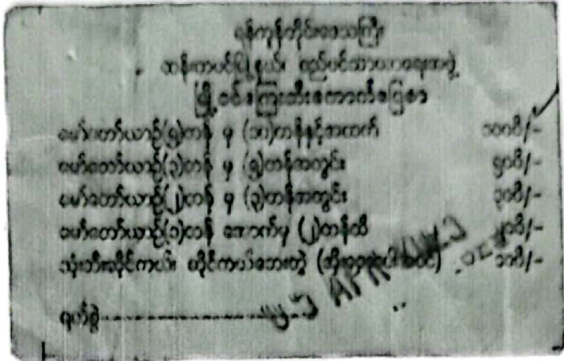 ရန်ကုန်တိုင်းဒေသကြီး
ထန်းတပင်မြို့နယ်၊ စည်ပင်သာယာရေးအဖွဲ့
မြို့ဝင်ကြေးဘီးကောက်ပြေစာ
မော်တော်ယာဉ်(၅)တန် မှ (၁၀)တန်နှင့်အထက် ၁၀၀ိ/-
မော်တော်ယာဉ်(၃)တန် မှ (၅)တန်အတွင်း ၅၀ိ/-
မော်တော်ယာဉ်(၂)တန် မှ (၃)တန်အတွင်း ၃၀ိ/-
မော်တော်ယာဉ်(၁)တန် အောက်မှ (၂)တန်ထိ ၂၀ိ/-
သုံးဘီးဆိုင်ကယ်၊ ဆိုင်ကယ်ဘေးတွဲ ၁၀ိ/-
ရက်စွဲ--------------------
APR